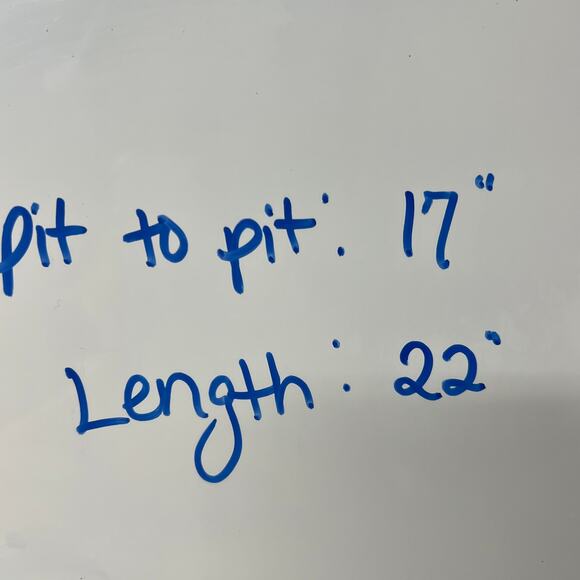 pit to pit: 17"
Length: 22"